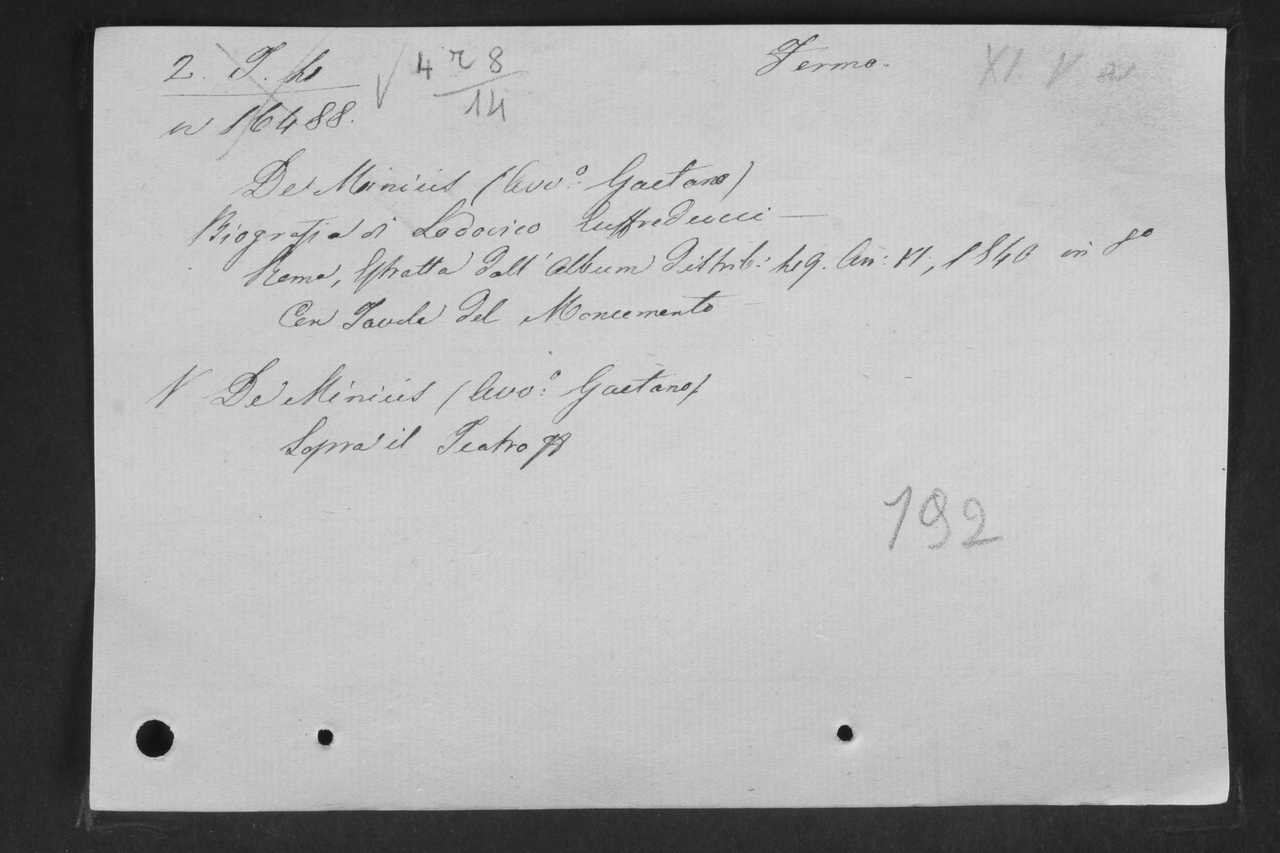 2. T. h
n 16488.
4 r 8
14
Fermo.
XI V
De Minicis (Avvo: Gaetano)
Biografia di Lodovico Euffreducci —
Roma, Estratto dall' Album Distrib: 49. An: VI, 1840 in 8o
Con Tavola del Monumento
N De Minicis (Avvo: Gaetano)
Sopra il Teatro
192